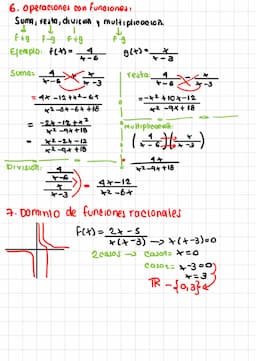 6. Operaciones con funciones:
Suma, resta, division y multiplicacion
F+g F-g F÷g F·g
Ejemplo: f(x)= 4/(x-6) g(x)= x/(x-3)
Suma: 4/(x-6) x/(x-3)
= (4x-12+x²-6x)/(x²-3x-6x+18)
= (-2x-12+x²)/(x²-9x+18)
= (x²-2x-12)/(x²-9x+18)
resta: 4/(x-6) - x/(x-3)
= (-x²+10x-12)/(x²-9x+18)
Multiplicacion:
(4/(x-6))(x/(x-3))
= 4x/(x²-9x+18)
Division:
(4/(x-6))/(x/(x-3)) = (4x-12)/(x²-6x)
7. Dominio de funciones racionales
f(x)= (2x-5)/(x(x-3)) → x(x-3)=0
2 casos → caso1: x=0
caso2: x-3=0
x=3
ℝ-{0,3}